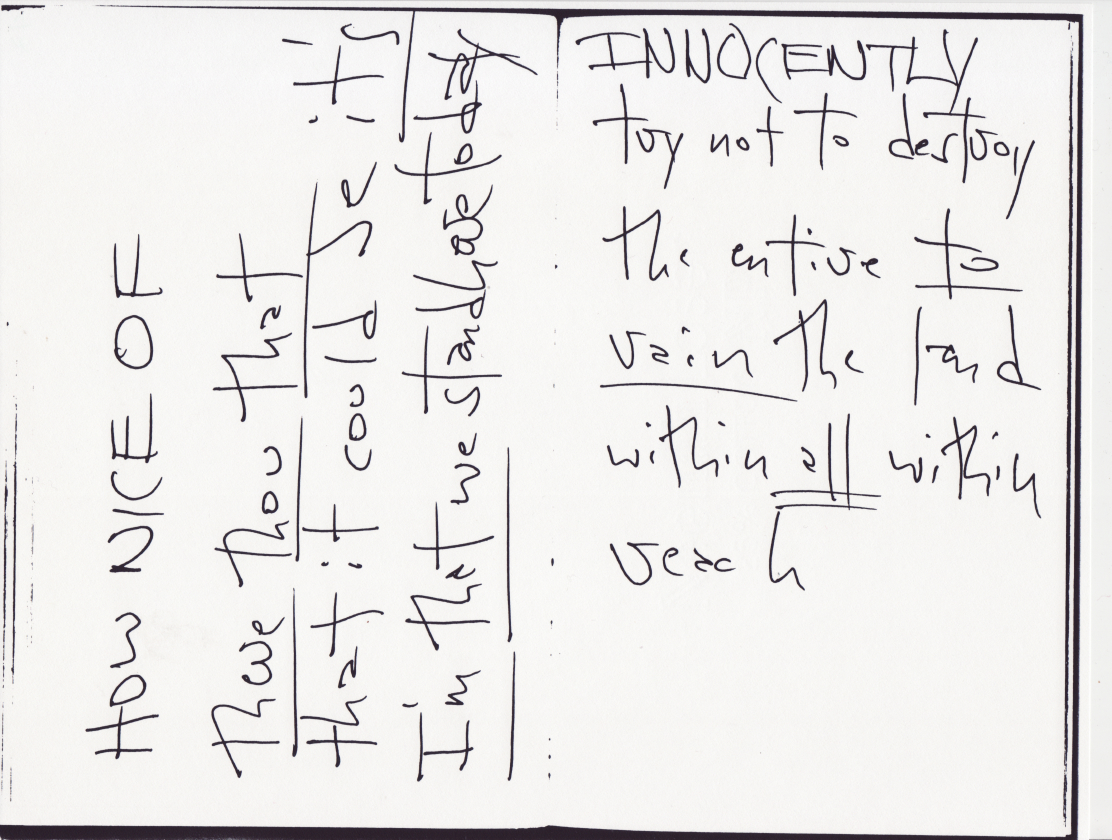 HOW NICE OF
thou that
that it could it's
Im that we stand have today
INNOCENTLY
try not to destroy
the entire to
rain the land
within all within
reach